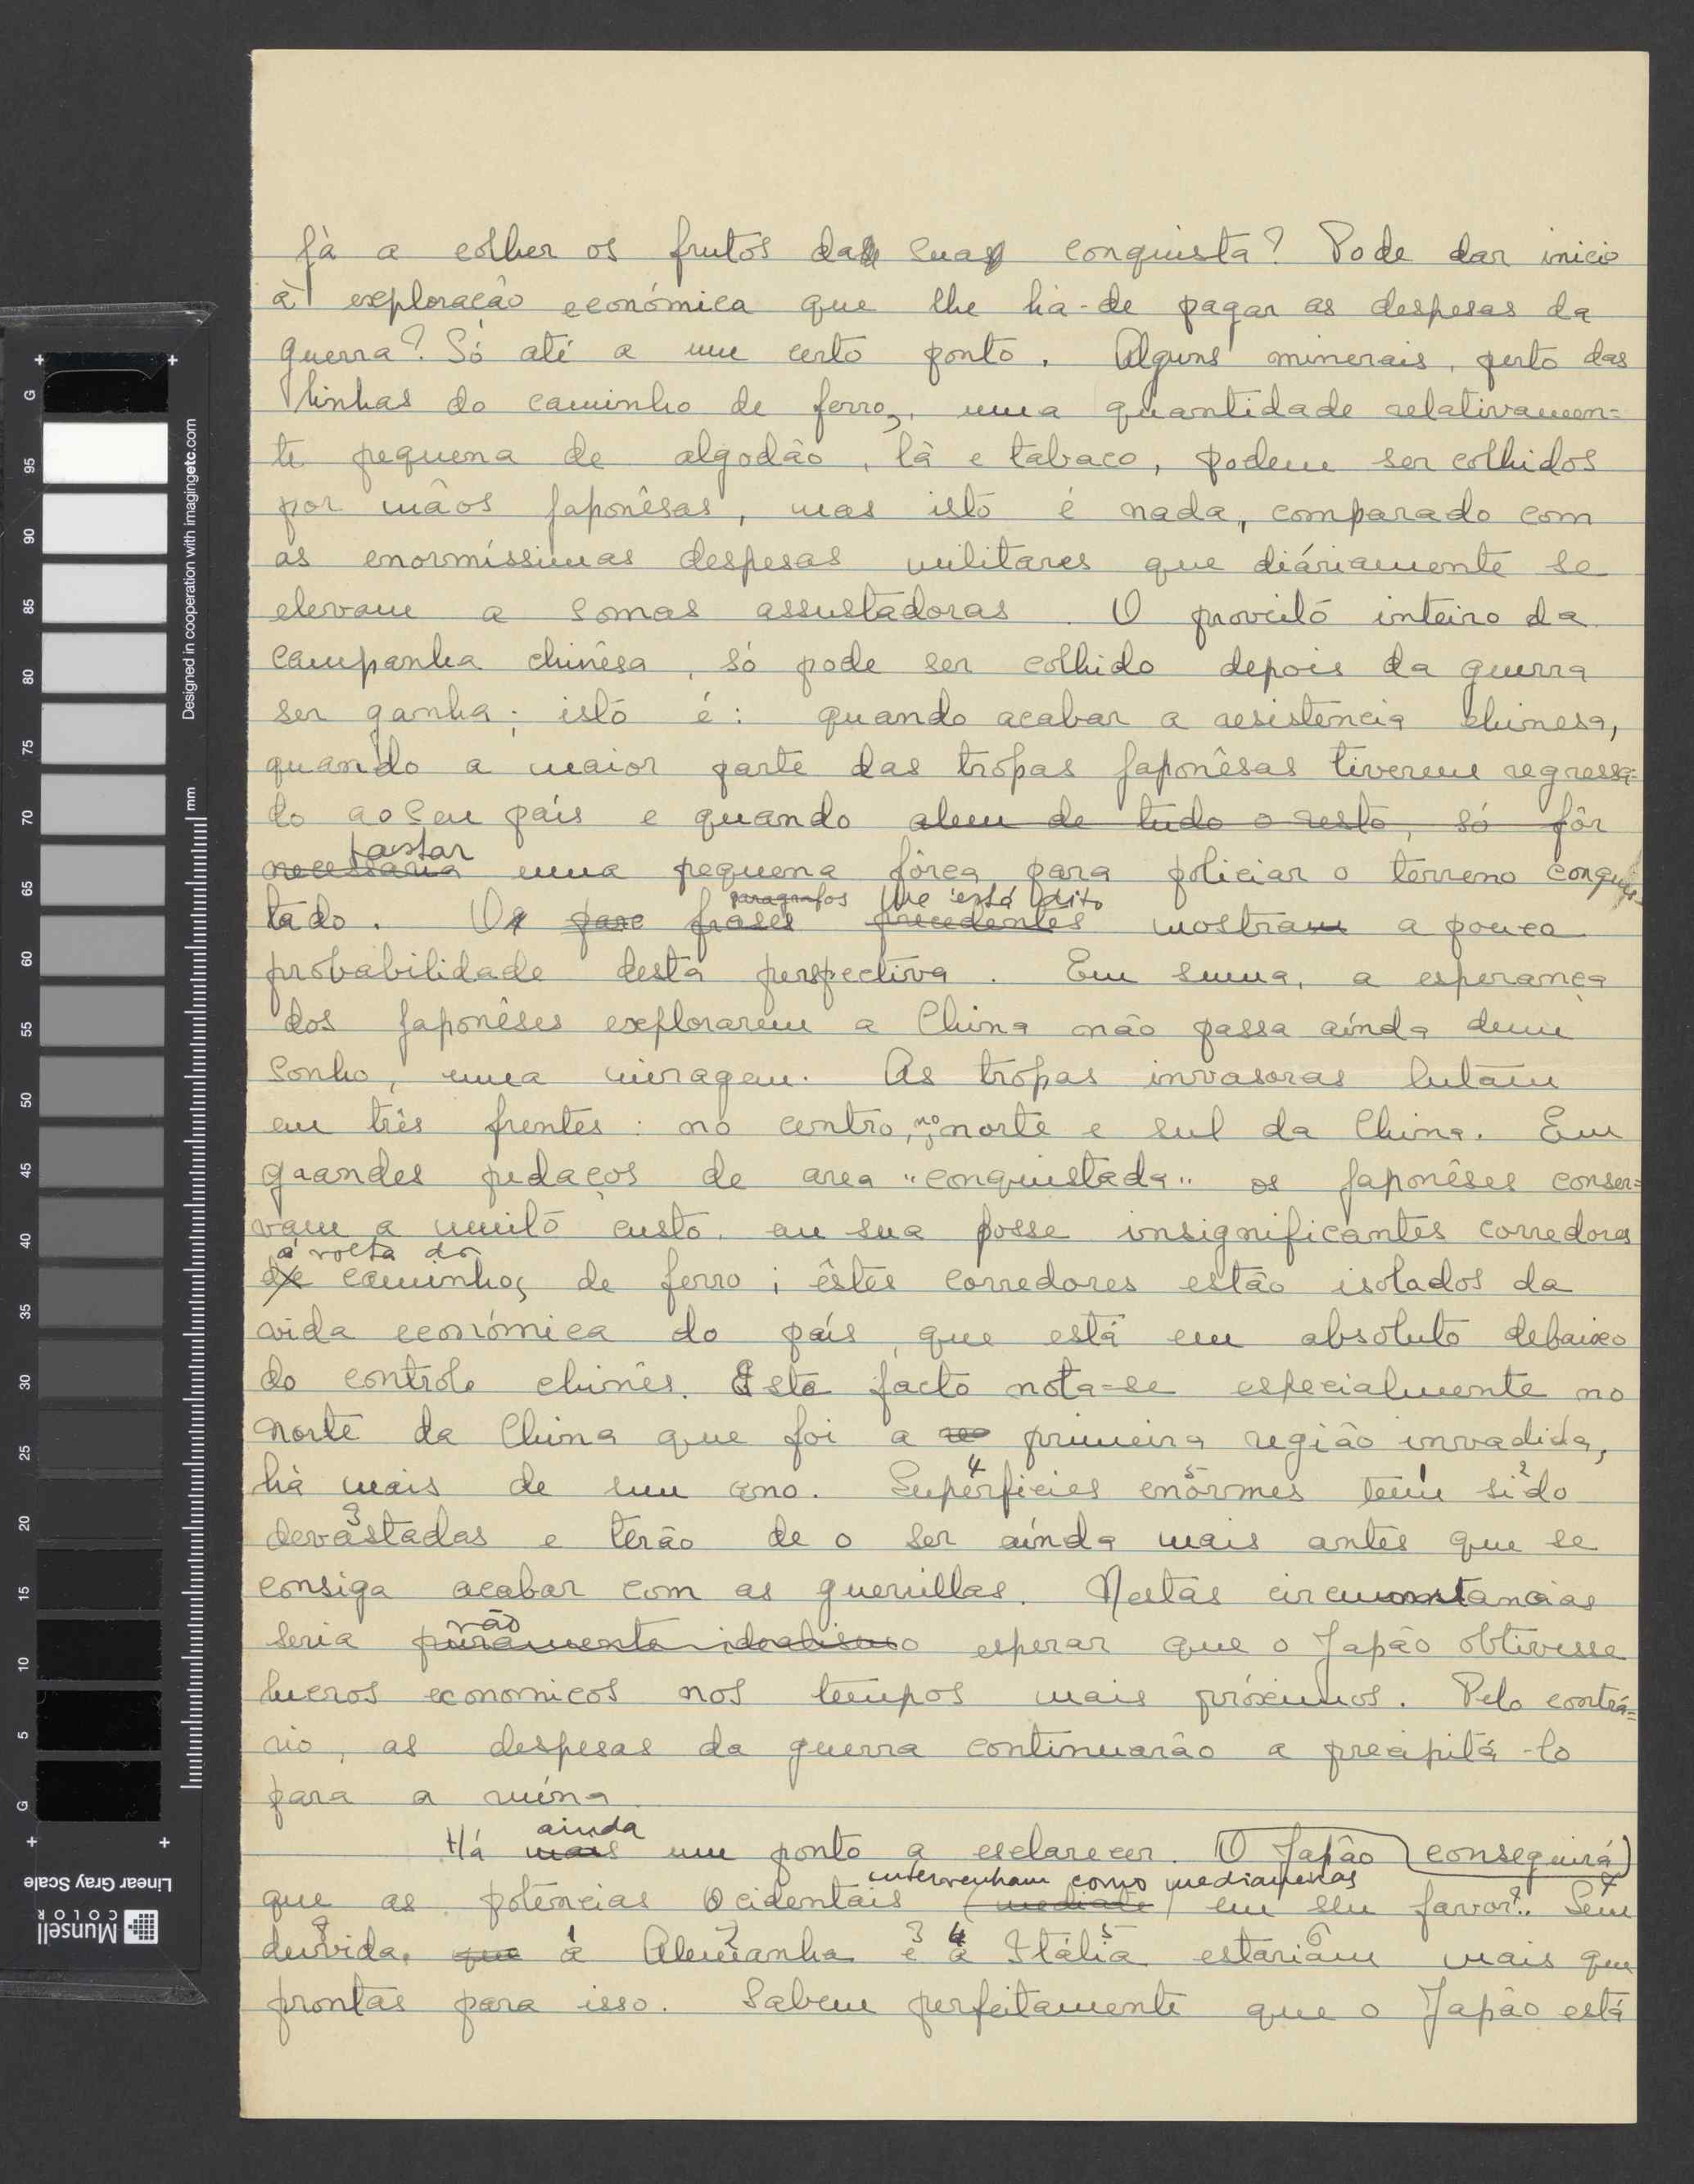 já a colher os frutos da sua conquista? Pode dar inicio
à exploração económica que lhe há-de pagar as despesas da
guerra? Só até a um certo ponto. Alguns minerais, perto das
linhas do caminho de ferro, uma quantidade relativamen=
te pequena de algodão, lã e tabaco, podem ser colhidos
por mãos japonêsas, mas isto é nada, comparado com
as enormíssimas despesas militares que diáriamente se
elevam a somas assustadoras. O proveito inteiro da
campanha chinêsa, só pode ser colhido depois da guerra
ser ganha; isto é: quando acabar a resistencia chinesa,
quando a maior parte das tropas japonêsas tiverem regressa=
do ao seu país e quando alem de tudo o resto, só fôr
bastar
necessaria uma pequena fôrça para policiar o terreno conquis
paragrafos que está dito
tado. O frases precedentes mostram a pouca
probabilidade desta perspectiva. Em suma, a esperança
dos japonêses explorarem a China não passa aínda dum
sonho, uma miragem. As tropas invasoras lutam
em três frentes: no centro, no norte e sul da China. Em
grandes pedaços de area "conquistada" os japonêses conser=
vam a muito custo em sua posse insignificantes corredores
á volta do
de caminho de ferro; êstes corredores estão isolados da
vida económica do país, que está em absoluto debaixo
do controle chinês. Este facto nota-se especialmente no
norte da China que foi a primeira região invadida,
há mais de um ano. Superficies enormes tem sido
4 5 1 2
devastadas e terão de o ser aínda mais antes que se
3
consiga acabar com as guerrillas. Nestas circunstancias
vão
seria puramente idealismo esperar que o Japão obtivesse
lucros economicos nos tempos mais próximos. Pelo contrá=
rio, as despesas da guerra continuarão a precipitá-lo
para a ruína
ainda
Há mais um ponto a esclarecer. O Japão conseguirá
intervenham como medianeiras
que as potencias Ocidentais (mediate) em seu favor? Sem
7
duvida, que a Alemanha e a Itália estariam mais que
8 1 2 3 4 5 6
prontas para isso. Sabem perfeitamente que o Japão está
Designed in cooperation with imagingetc.com
mm
G 95 90 85 80 75 70 65 60 55 50 45 40 35 30 25 20 15 10 5 G
Linear Gray Scale
Munsell
COLOR